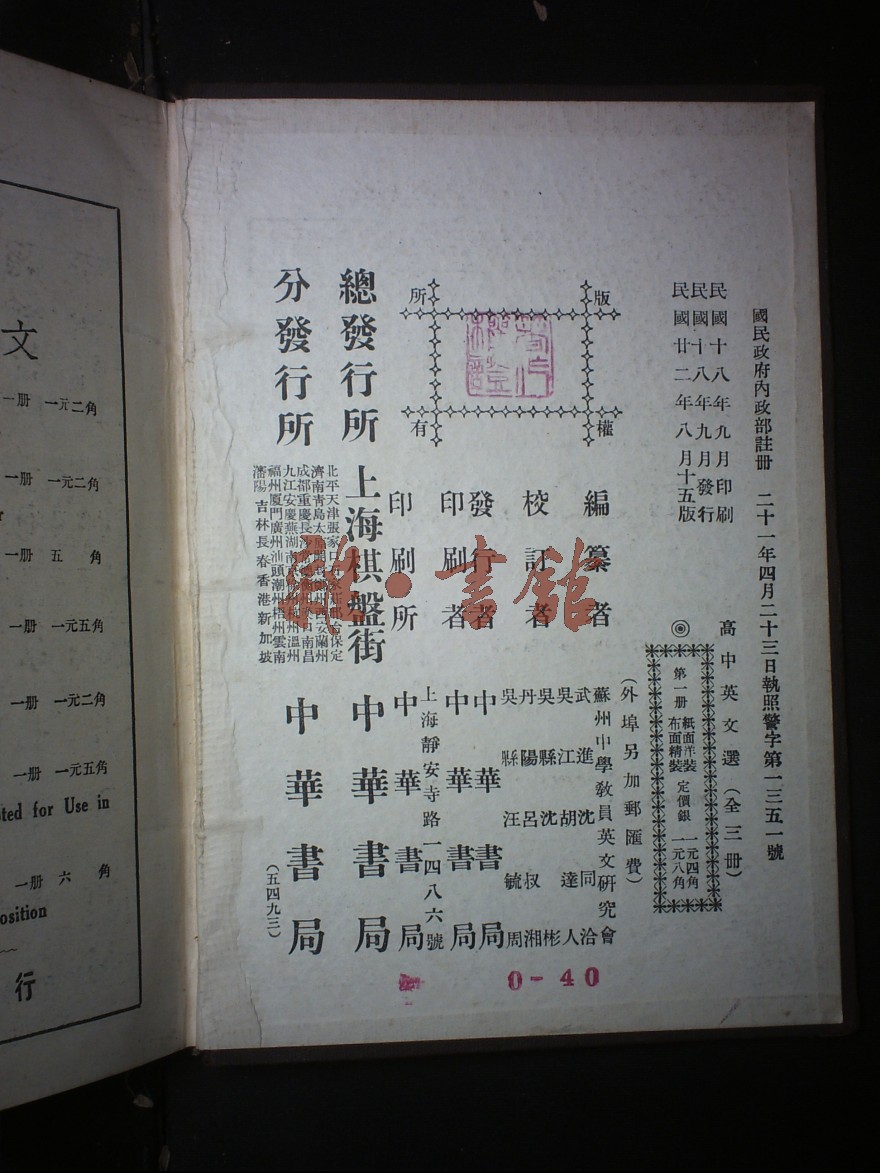 國民政府內政部註冊　二十一年四月二十三日執照警字第一三五一號
民國十八年九月印刷
民國十八年九月發行
民國廿二年八月十五版
高中英文選（全三冊）
◎
第一冊
紙面洋裝
布面精裝
定價銀
一元四角
一元八角
（外埠另加郵匯費）
版權
所有
編纂者　蘇州中學教員英文研究會
校訂者
武進沈同洽
吳江胡達人
吳縣沈彬
丹陽呂叔湘
吳縣汪毓周
發行者　中華書局
印刷者　中華書局
印刷所
上海靜安寺路一四八六號
中華書局
總發行所　上海棋盤街　中華書局
分發行所
北平天津張家口
保定
濟南青島太原
蘭州
成都重慶長沙
南昌
九江安慶蕪湖南京
溫州
福州廈門廣州汕頭潮州梧州雲南
瀋陽吉林長春香港新加坡
中華書局
（五四九三）
0-40
書館
文
一冊　一元二角
一冊　一元二角
一冊　五角
一冊　一元五角
一冊　一元二角
一冊　一元五角
for Use in
一冊　六角
行